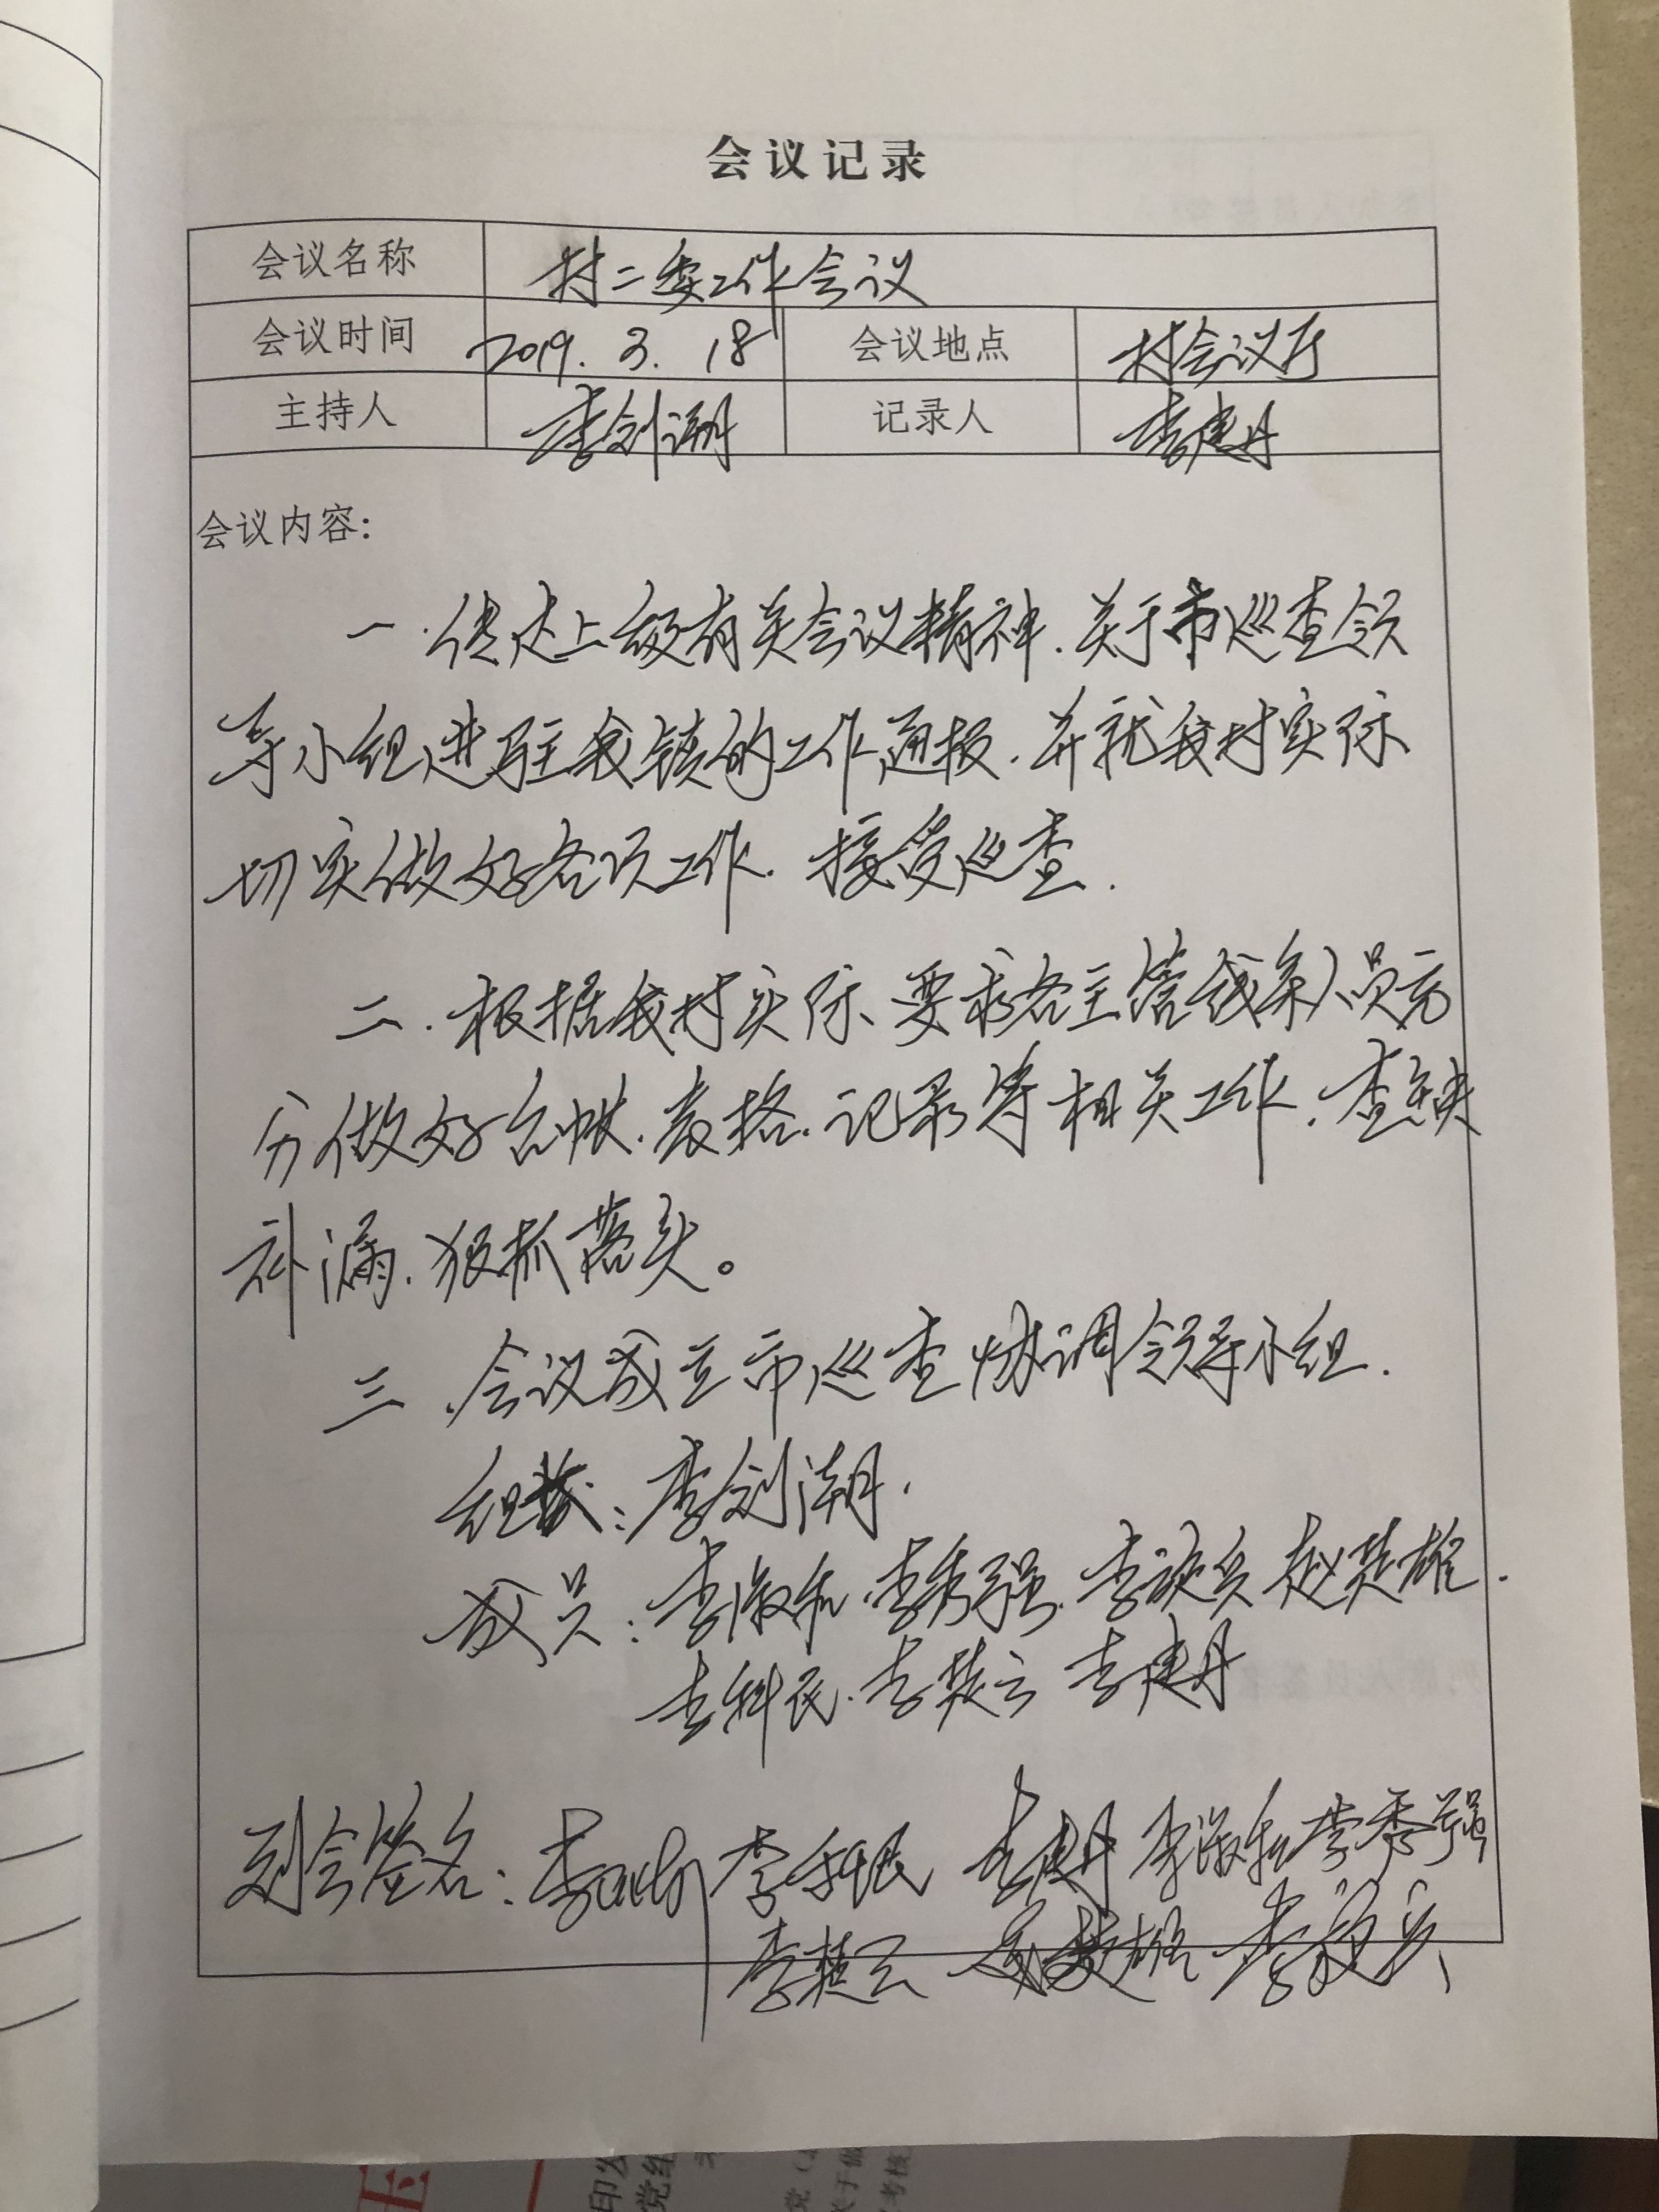 会议记录
会议名称 村二委工作会议
会议时间 2019.3.18 会议地点 村会议厅
主持人 李剑潮 记录人 李建丹
会议内容:
一.传达上级有关会议精神.关于市巡查领
导小组进驻我镇的工作通报.并就我村实际
切实做好各项工作.接受巡查.
二.根据我村实际、要求各主管线条人员充
分做好台帐.表格.记录等相关工作.查缺
补漏.狠抓落实。
三.会议成立市巡查协调领导小组.
组长:李剑潮.
成员:李淑和.李秀强.李谊兵 赵楚雄.
李科民.李楚云 李建丹
到会签名: 李科民 李建丹 李淑和 李秀强
李楚云 赵楚雄 李谊兵